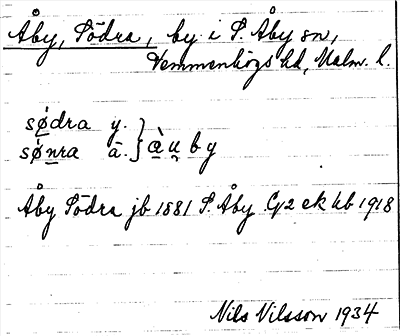 Åby, Södra, by i S. Åby sn,
Vemmenhögs hd, Malm. l.
södra y. } àu̯ by
sønra ä.
Åby Södra jb 1881 S. Åby G12 ek kb 1918
Nils Nilsson 1934